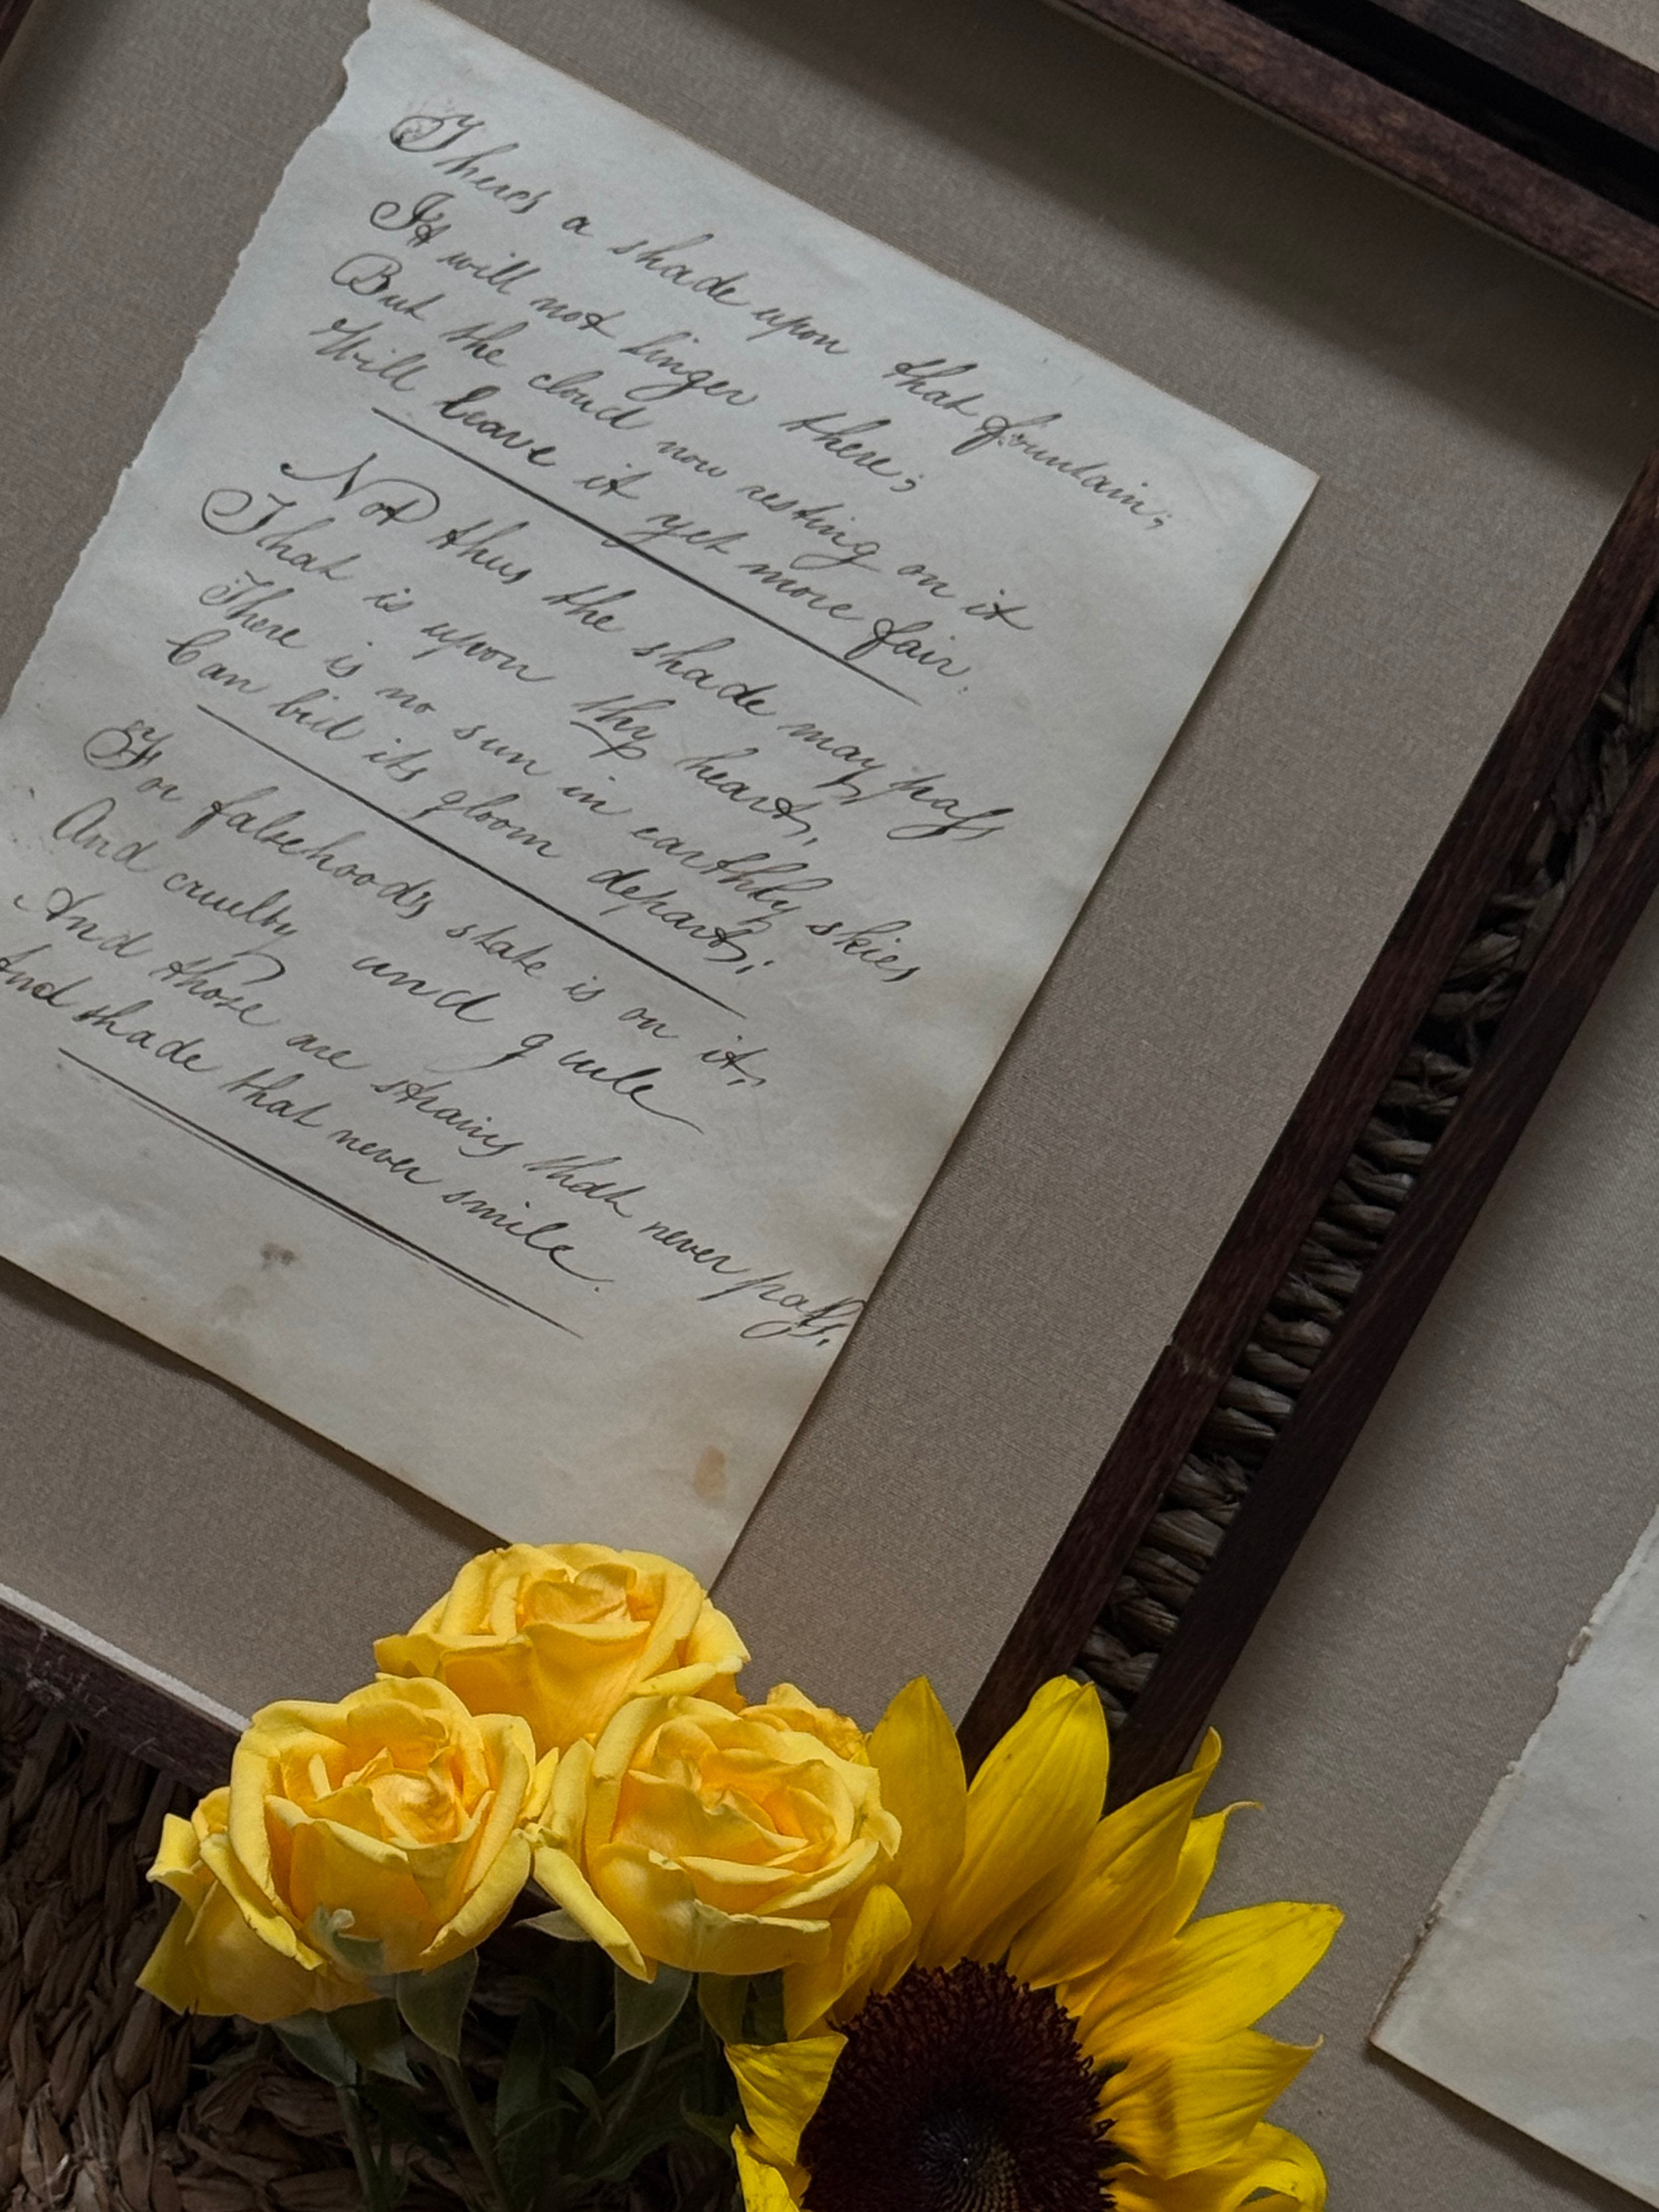 There's a shade upon that fountain;
It will not linger there;
But the cloud now resting on it
Will leave it yet more fair.
Not thus the shade may pass
That is upon thy heart,
There is no sun in earthly skies
Can bid its gloom depart;
For falsehoods state is on it,
And cruelty and guile
And those are stains that never pass,
And shade that never smile.